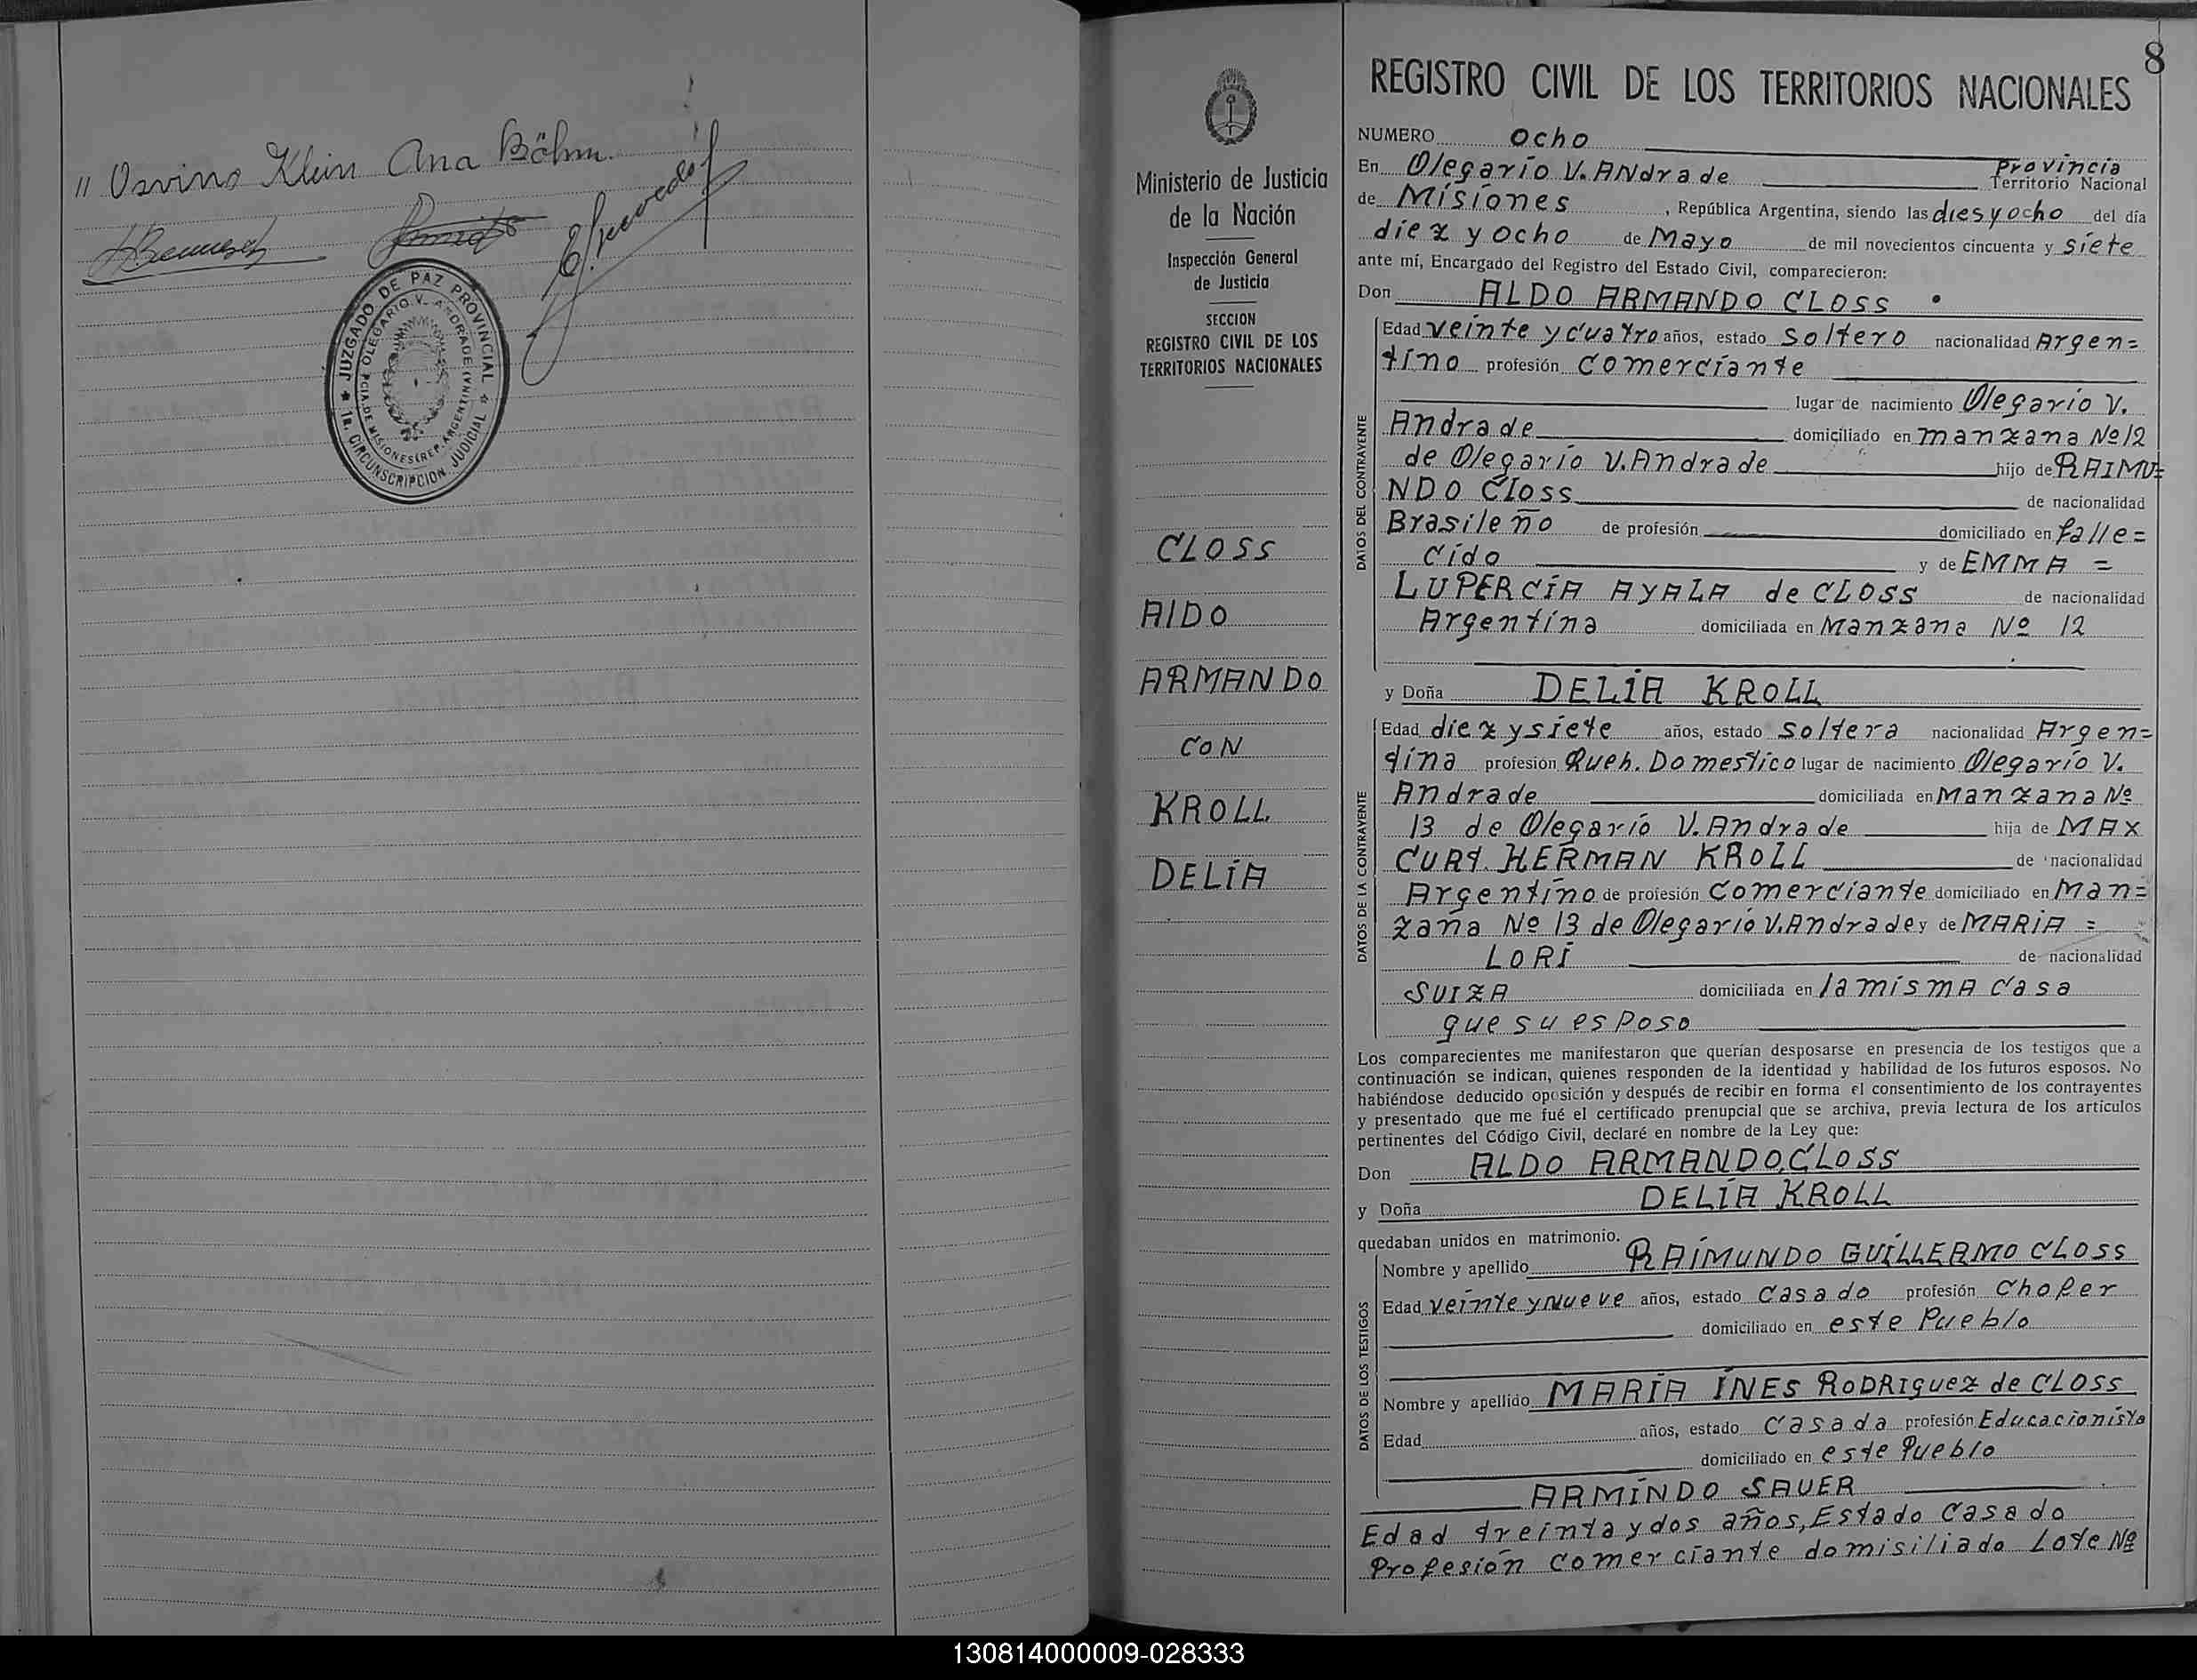 " Osvino Klein Ana Böhm
JUZGADO DE PAZ PROVINCIAL
OLEGARIO V. ANDRADE
PCIA. DE MISIONES (REP. ARGENTINA)
1a. CIRCUNSCRIPCION JUDICIAL
Ministerio de Justicia
de la Nación
Inspección General
de Justicia
SECCION
REGISTRO CIVIL DE LOS
TERRITORIOS NACIONALES
CLOSS
AlDO
ARMANDO
CON
KROLL
DELIA
8
REGISTRO CIVIL DE LOS TERRITORIOS NACIONALES
NUMERO ocho
En Olegario V. ANdrade Provincia
Territorio Nacional
de Misiones, República Argentina, siendo las dies y ocho del día
diez y ocho de Mayo de mil novecientos cincuenta y siete
ante mí, Encargado del Registro del Estado Civil, comparecieron:
Don ALDO ARMANDO CLOSS
DATOS DEL CONTRAYENTE
Edad veinte y cuatro años, estado soltero nacionalidad Argen=
tino profesión comerciante
lugar de nacimiento Olegario V.
Andrade domiciliado en manzana Nº 12
de Olegario V. Andrade hijo de RAIMU=
NDO Closs de nacionalidad
Brasileño de profesión domiciliado en falle=
cido y de EMMA =
LUPERCIA AYALA de CLOSS de nacionalidad
Argentina domiciliada en Manzana Nº 12
y Doña DELIA KROLL
DATOS DE LA CONTRAYENTE
Edad diez y siete años, estado soltera nacionalidad Argen=
tina profesión Queh. Domestico lugar de nacimiento Olegario V.
Andrade domiciliada en Manzana Nº
13 de Olegario V. Andrade hija de MAX
CURT HERMAN KROLL de nacionalidad
Argentino de profesión Comerciante domiciliado en Man=
zana Nº 13 de Olegario V. Andrade y de MARIA =
LORI de nacionalidad
SUIZA domiciliada en la misma casa
que su esposo
Los comparecientes me manifestaron que querían desposarse en presencia de los testigos que a
continuación se indican, quienes responden de la identidad y habilidad de los futuros esposos. No
habiéndose deducido oposición y después de recibir en forma el consentimiento de los contrayentes
y presentado que me fué el certificado prenupcial que se archiva, previa lectura de los artículos
pertinentes del Código Civil, declaré en nombre de la Ley que:
Don ALDO ARMANDO CLOSS
y Doña DELIA KROLL
quedaban unidos en matrimonio.
DATOS DE LOS TESTIGOS
Nombre y apellido RAIMUNDO GUILLERMO CLOSS
Edad veinte y Nueve años, estado Casado profesión Chofer
domiciliado en este Pueblo
Nombre y apellido MARIA INES RODRIguez de CLOSS
Edad años, estado Casada profesión Educacionista
domiciliado en este Pueblo
ARMINDO SAUER
Edad treinta y dos años, Estado Casado
Profesión comerciante domisiliado Lote Nº
130814000009-028333